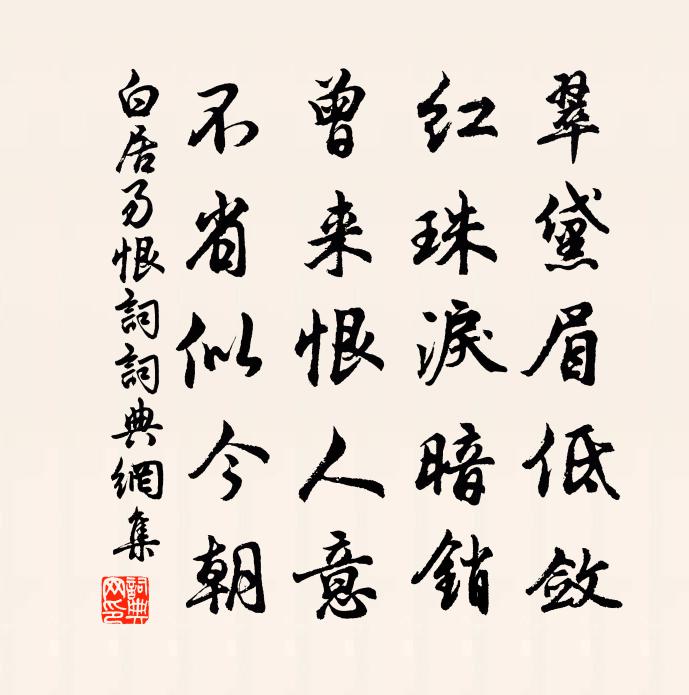 翠黛眉低敛
红珠淚暗銷
曾来恨人意
不省似今朝
白居易恨詞詞典網集